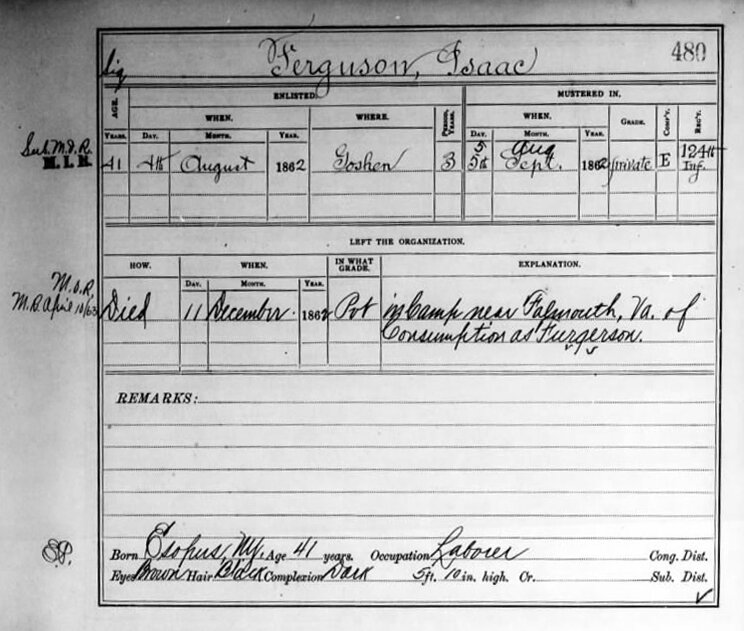 Sig Ferguson, Isaac 480
ENLISTED. MUSTERED IN.
AGE. WHEN. WHERE. PERIOD, YEARS. WHEN. GRADE. COMP'Y. REG'T.
YEARS. DAY. MONTH. YEAR. DAY. MONTH. YEAR.
Sub. M.I.R.
M.I.R.
5 Aug
41 4th August 1862 Goshen 3 5th Sept. 1862 private E 124th Inf.
LEFT THE ORGANIZATION.
HOW. WHEN. IN WHAT GRADE. EXPLANATION.
DAY. MONTH. YEAR.
M.O.R.
M.R. April 10/63
Died 11 December 1862 Pvt in Camp near Falmouth, Va. of
Consumption as Furgerson.
REMARKS:
Born Esopus, NY, Age 41 years. Occupation Laborer Cong. Dist.
Eyes Brown Hair Black Complexion Dark 5 ft. 10 in. high. Cr. Sub. Dist.